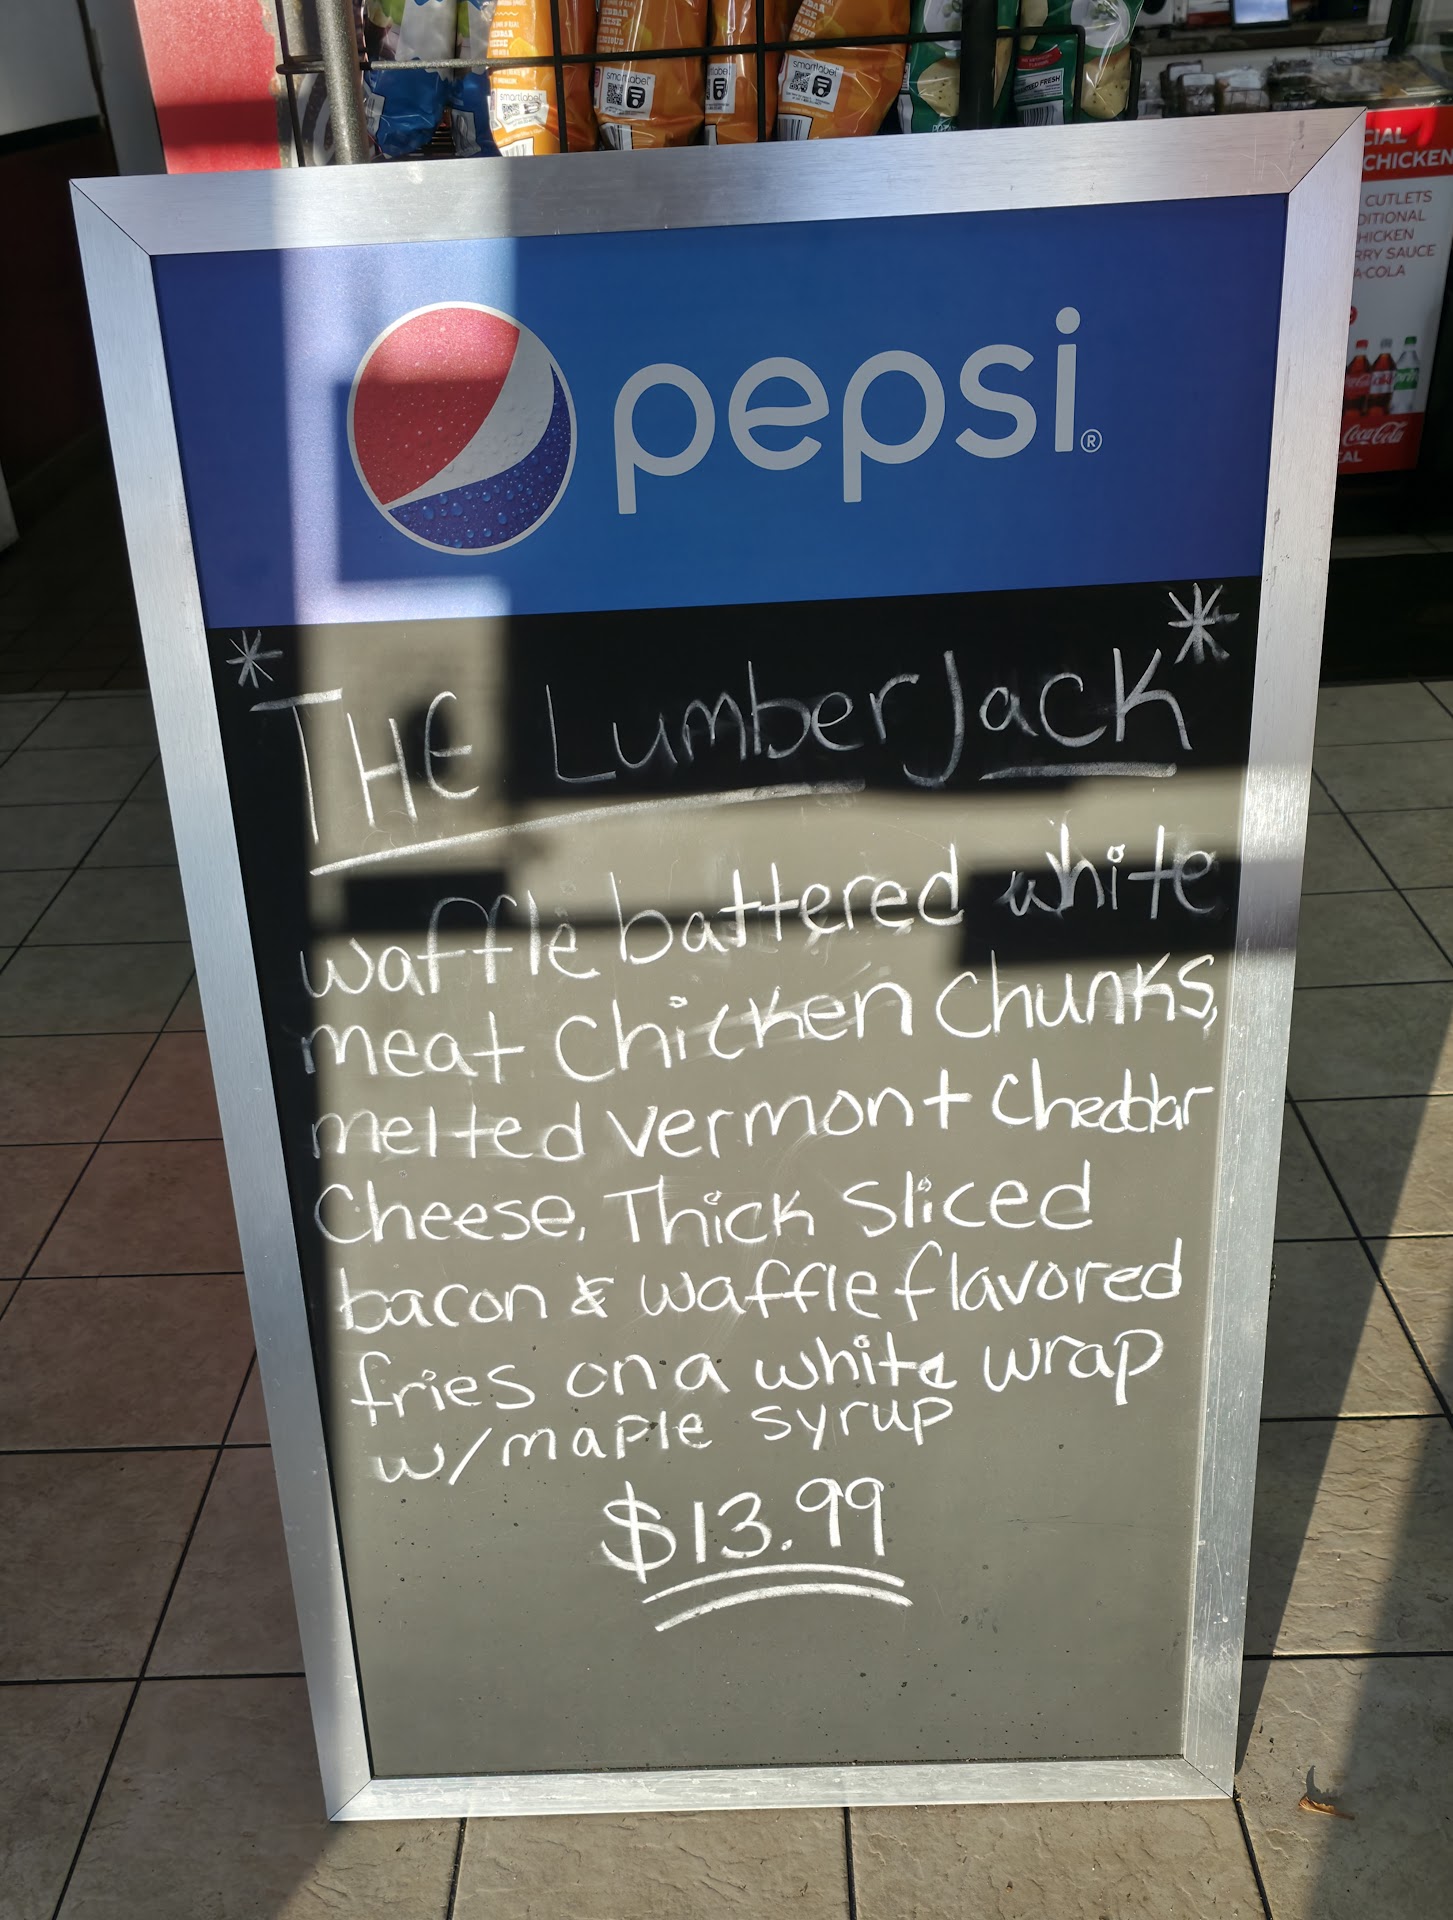 smartlabel
smartlabel
smartlabel
smartlabel
CIAL
CHICKEN
CUTLETS
DITIONAL
HICKEN
RRY SAUCE
A-COLA
Coca-Cola
CAL
pepsi®
*THE LumberJack*
waffle battered white
meat Chicken Chunks,
melted vermont Cheddar
Cheese, Thick Sliced
bacon & waffle flavored
fries on a white wrap
w/maple syrup
$13.99